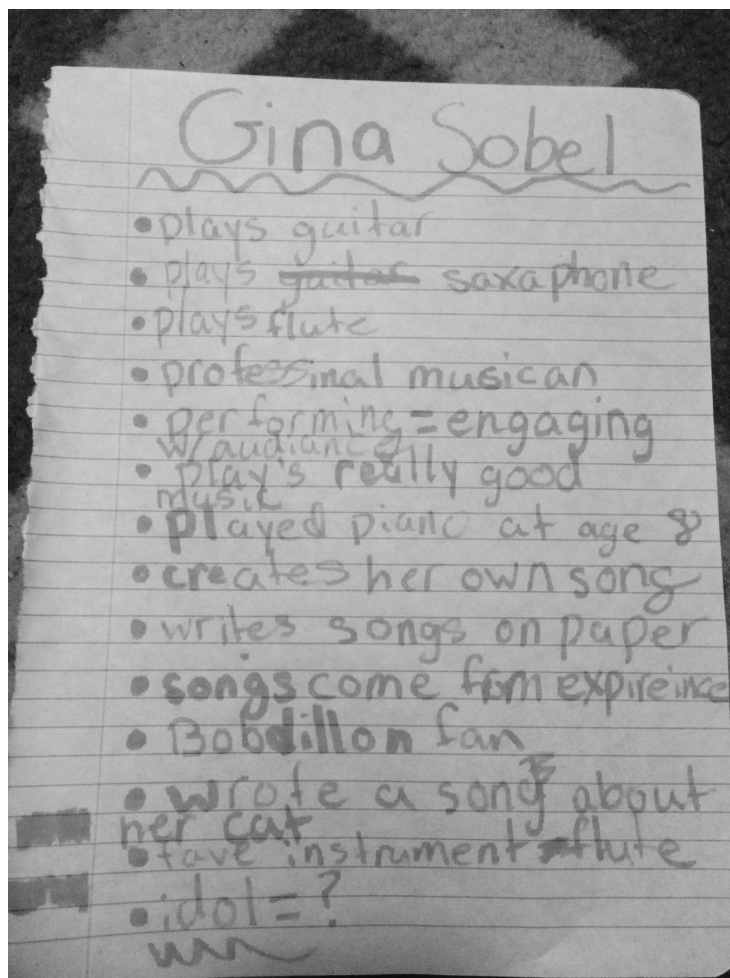 Gina Sobel
• plays guitar
• plays guitar saxaphone
• plays flute
• professinal musican
• performing = engaging
w/audiance
• play's really good
music
• played piano at age 8
• creates her own song
• writes songs on paper
• songs come from expireince
• Bobdillon fan
• wrote a song about
her cat
• fave instrument = flute
• idol = ?